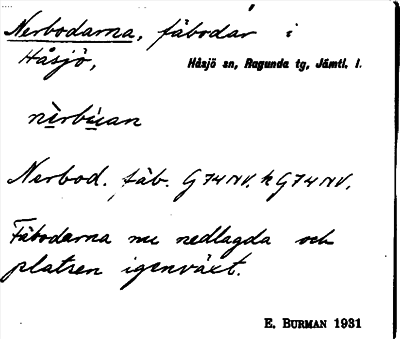 Nerbodarna, fäbodar i
Håsjö, Håsjö sn, Ragunda tg, Jämtl. l.
nèrbúan
Nerbod. fäb. G74NV. k G74NV.
Fäbodarna nu nedlagda och
platsen igenväxt.
E. BURMAN 1931